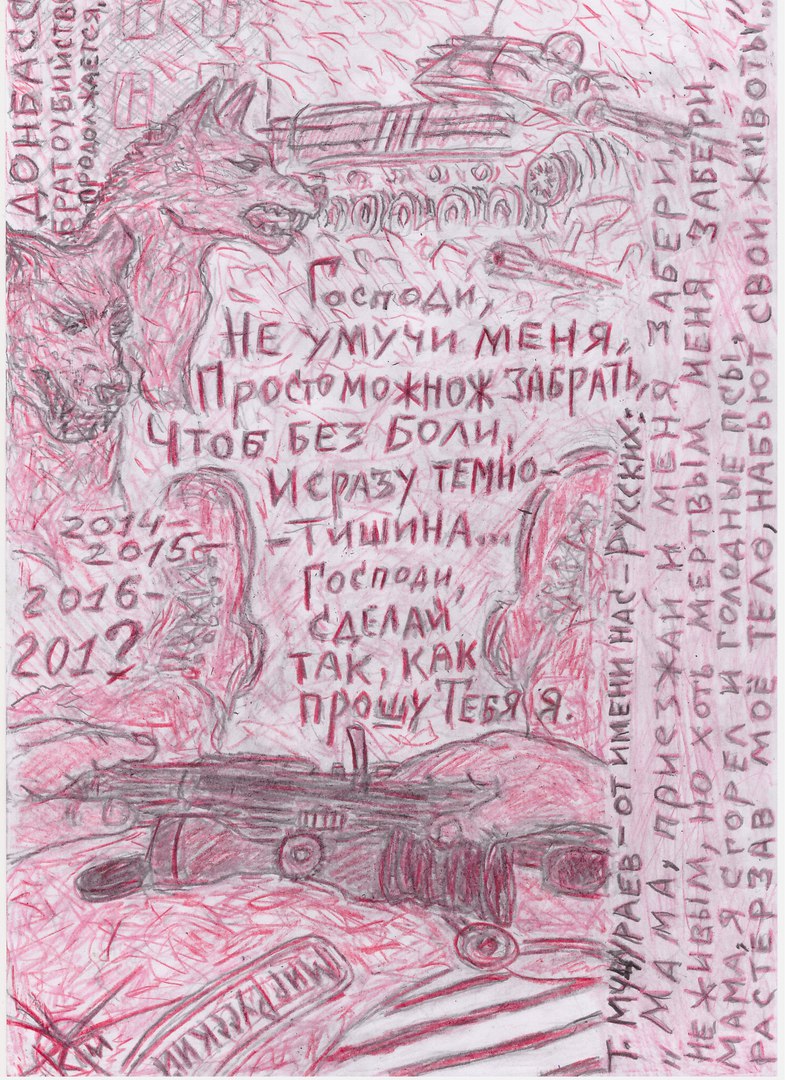 ДОНБАСС
БРАТОУБИЙСТВО
ПРОДОЛЖАЕТСЯ,
Господи,
НЕ УМУЧИ МЕНЯ,
ПРОСТО МОЖНО Ж ЗАБРАТЬ,
ЧТОБ БЕЗ БОЛИ,
И СРАЗУ ТЕМНО-
-ТИШИНА...
Господи,
СДЕЛАЙ
ТАК, КАК
ПРОШУ ТЕБЯ Я.
2014-
2015-
2016-
201?
МИР РУССКИЙ
Т. МУЦУРАЕВ - ОТ ИМЕНИ НАС - РУССКИХ:
„МАМА, ПРИЕЗЖАЙ И МЕНЯ ЗАБЕРИ,
НЕ ЖИВЫМ, НО ХОТЬ МЕРТВЫМ МЕНЯ ЗАБЕРИ,
МАМА, Я СГОРЕЛ И ГОЛОДНЫЕ ПСЫ,
РАСТЕРЗАВ МОЁ ТЕЛО, НАБЬЮТ СВОИ ЖИВОТЫ..."